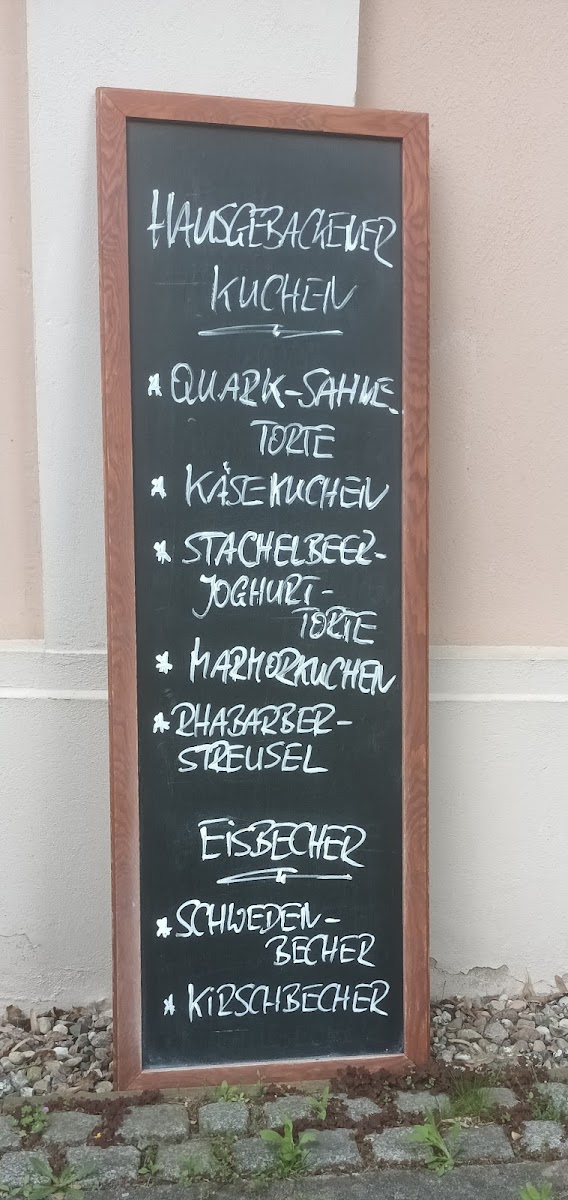 HAUSGEBACKENER
KUCHEN
* QUARK-SAHNE-
TORTE
* KÄSEKUCHEN
* STACHELBEER-
JOGHURT-
TORTE
* MARMORKUCHEN
* RHABARBER-
STREUSEL
EiSBECHER
* SCHWEDEN-
BECHER
* KiRSCHBECHER